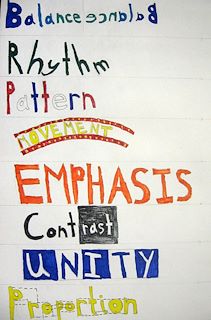 Balance Balance
Rhythm
Pattern
MOVEMENT
EMPHASIS
Contrast
UNITY
Proportion